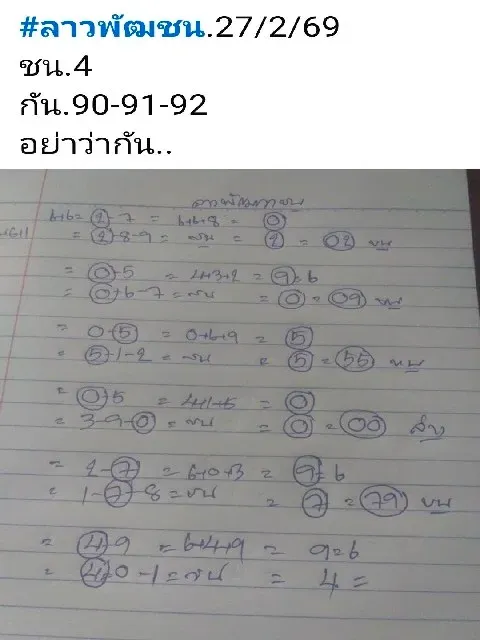 #ลาวพัฒชน.27/2/69
ชน.4
กัน.90-91-92
อย่าว่ากัน..
ลาวพัฒนาชน
6+6= 2-7 = 6+6+8 = 0
= 2-8-9 = ชน = 2 = 02 บน
= 0-5 = 4+3+2 = 9=6
= 0-6-7 = ชน = 0 = 09 บน
= 0-5 = 0+6+9 = 5
= 5-1-2 = ชน = 5 = 55 บน
= 0-5 = 4+1+5 = 0
= 3-9-0 = ชน = 0 = 00
= 2-7 = 6+0+3 = 9=6
= 1-7-8 = บน = 7 = 79 บน
= 4-9 = 6+4+9 = 9=6
= 4-0-1 = ชน = 4 =